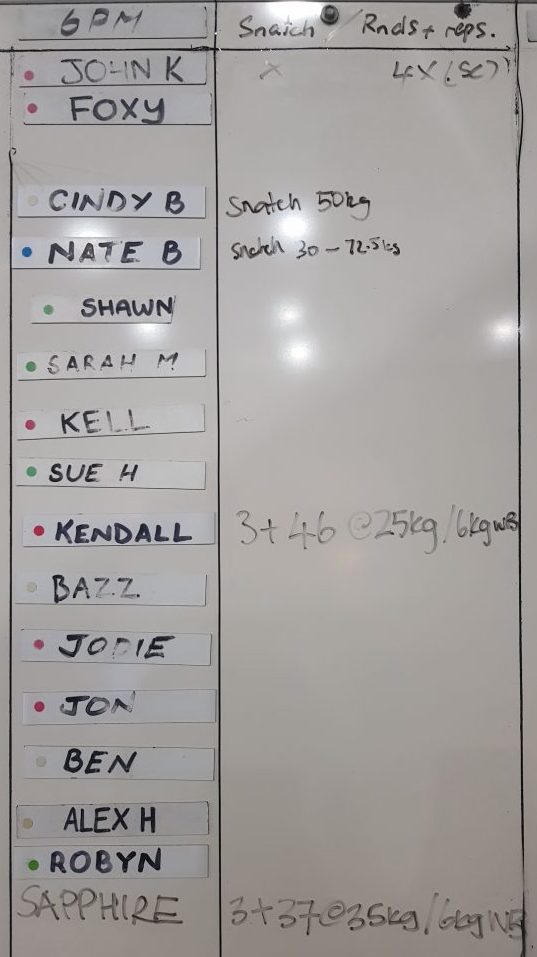 6PM Snatch Rnds + reps.
JOHN K x 4x (sc)
FOXY
CINDY B Snatch 50kg
NATE B Snatch 30 - 72.5kgs
SHAWN
SARAH M
KELL
SUE H
KENDALL 3+46 @25kg/6kgWB
BAZZ
JODIE
JON
BEN
ALEX H
ROBYN
SAPPHIRE 3+37@35kg/6kgWB